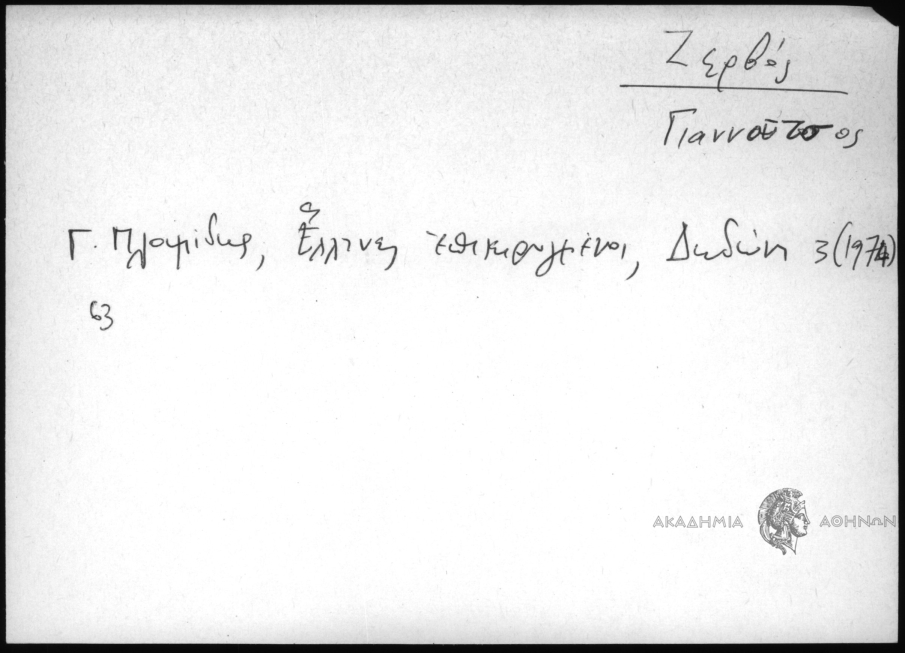 Ζερβός
Γιαννούτσος
Γ. Πλουμίδης, Ἕλληνες ἐπικηρυγμένοι, Δωδώνη 3 (1974)
63
ΑΚΑΔΗΜΙΑ ΑΘΗΝΩΝ